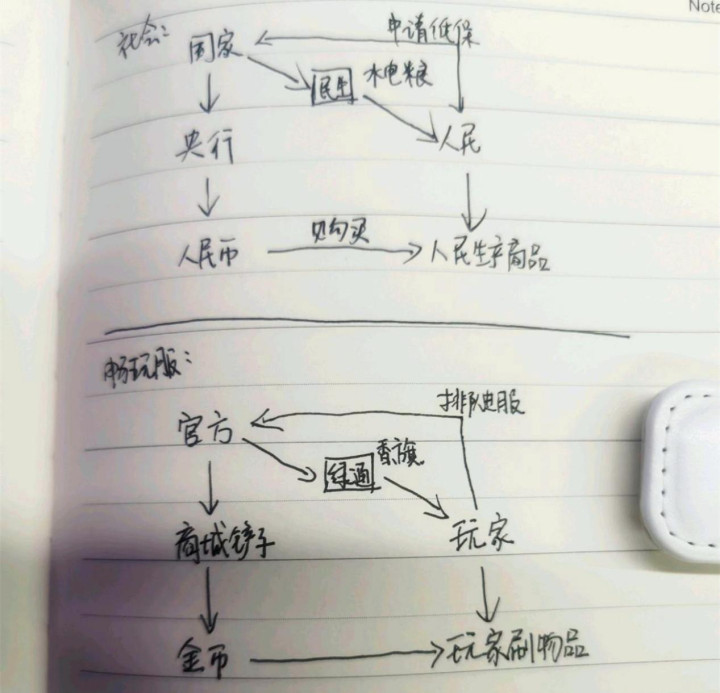 Note
社会：
国家
申请低保
民生
水电粮
央行
人民
人民币
购买
人民生产商品
畅玩服：
官方
排队进服
绿通
香旗
商城铲子
玩家
金币
玩家刷物品